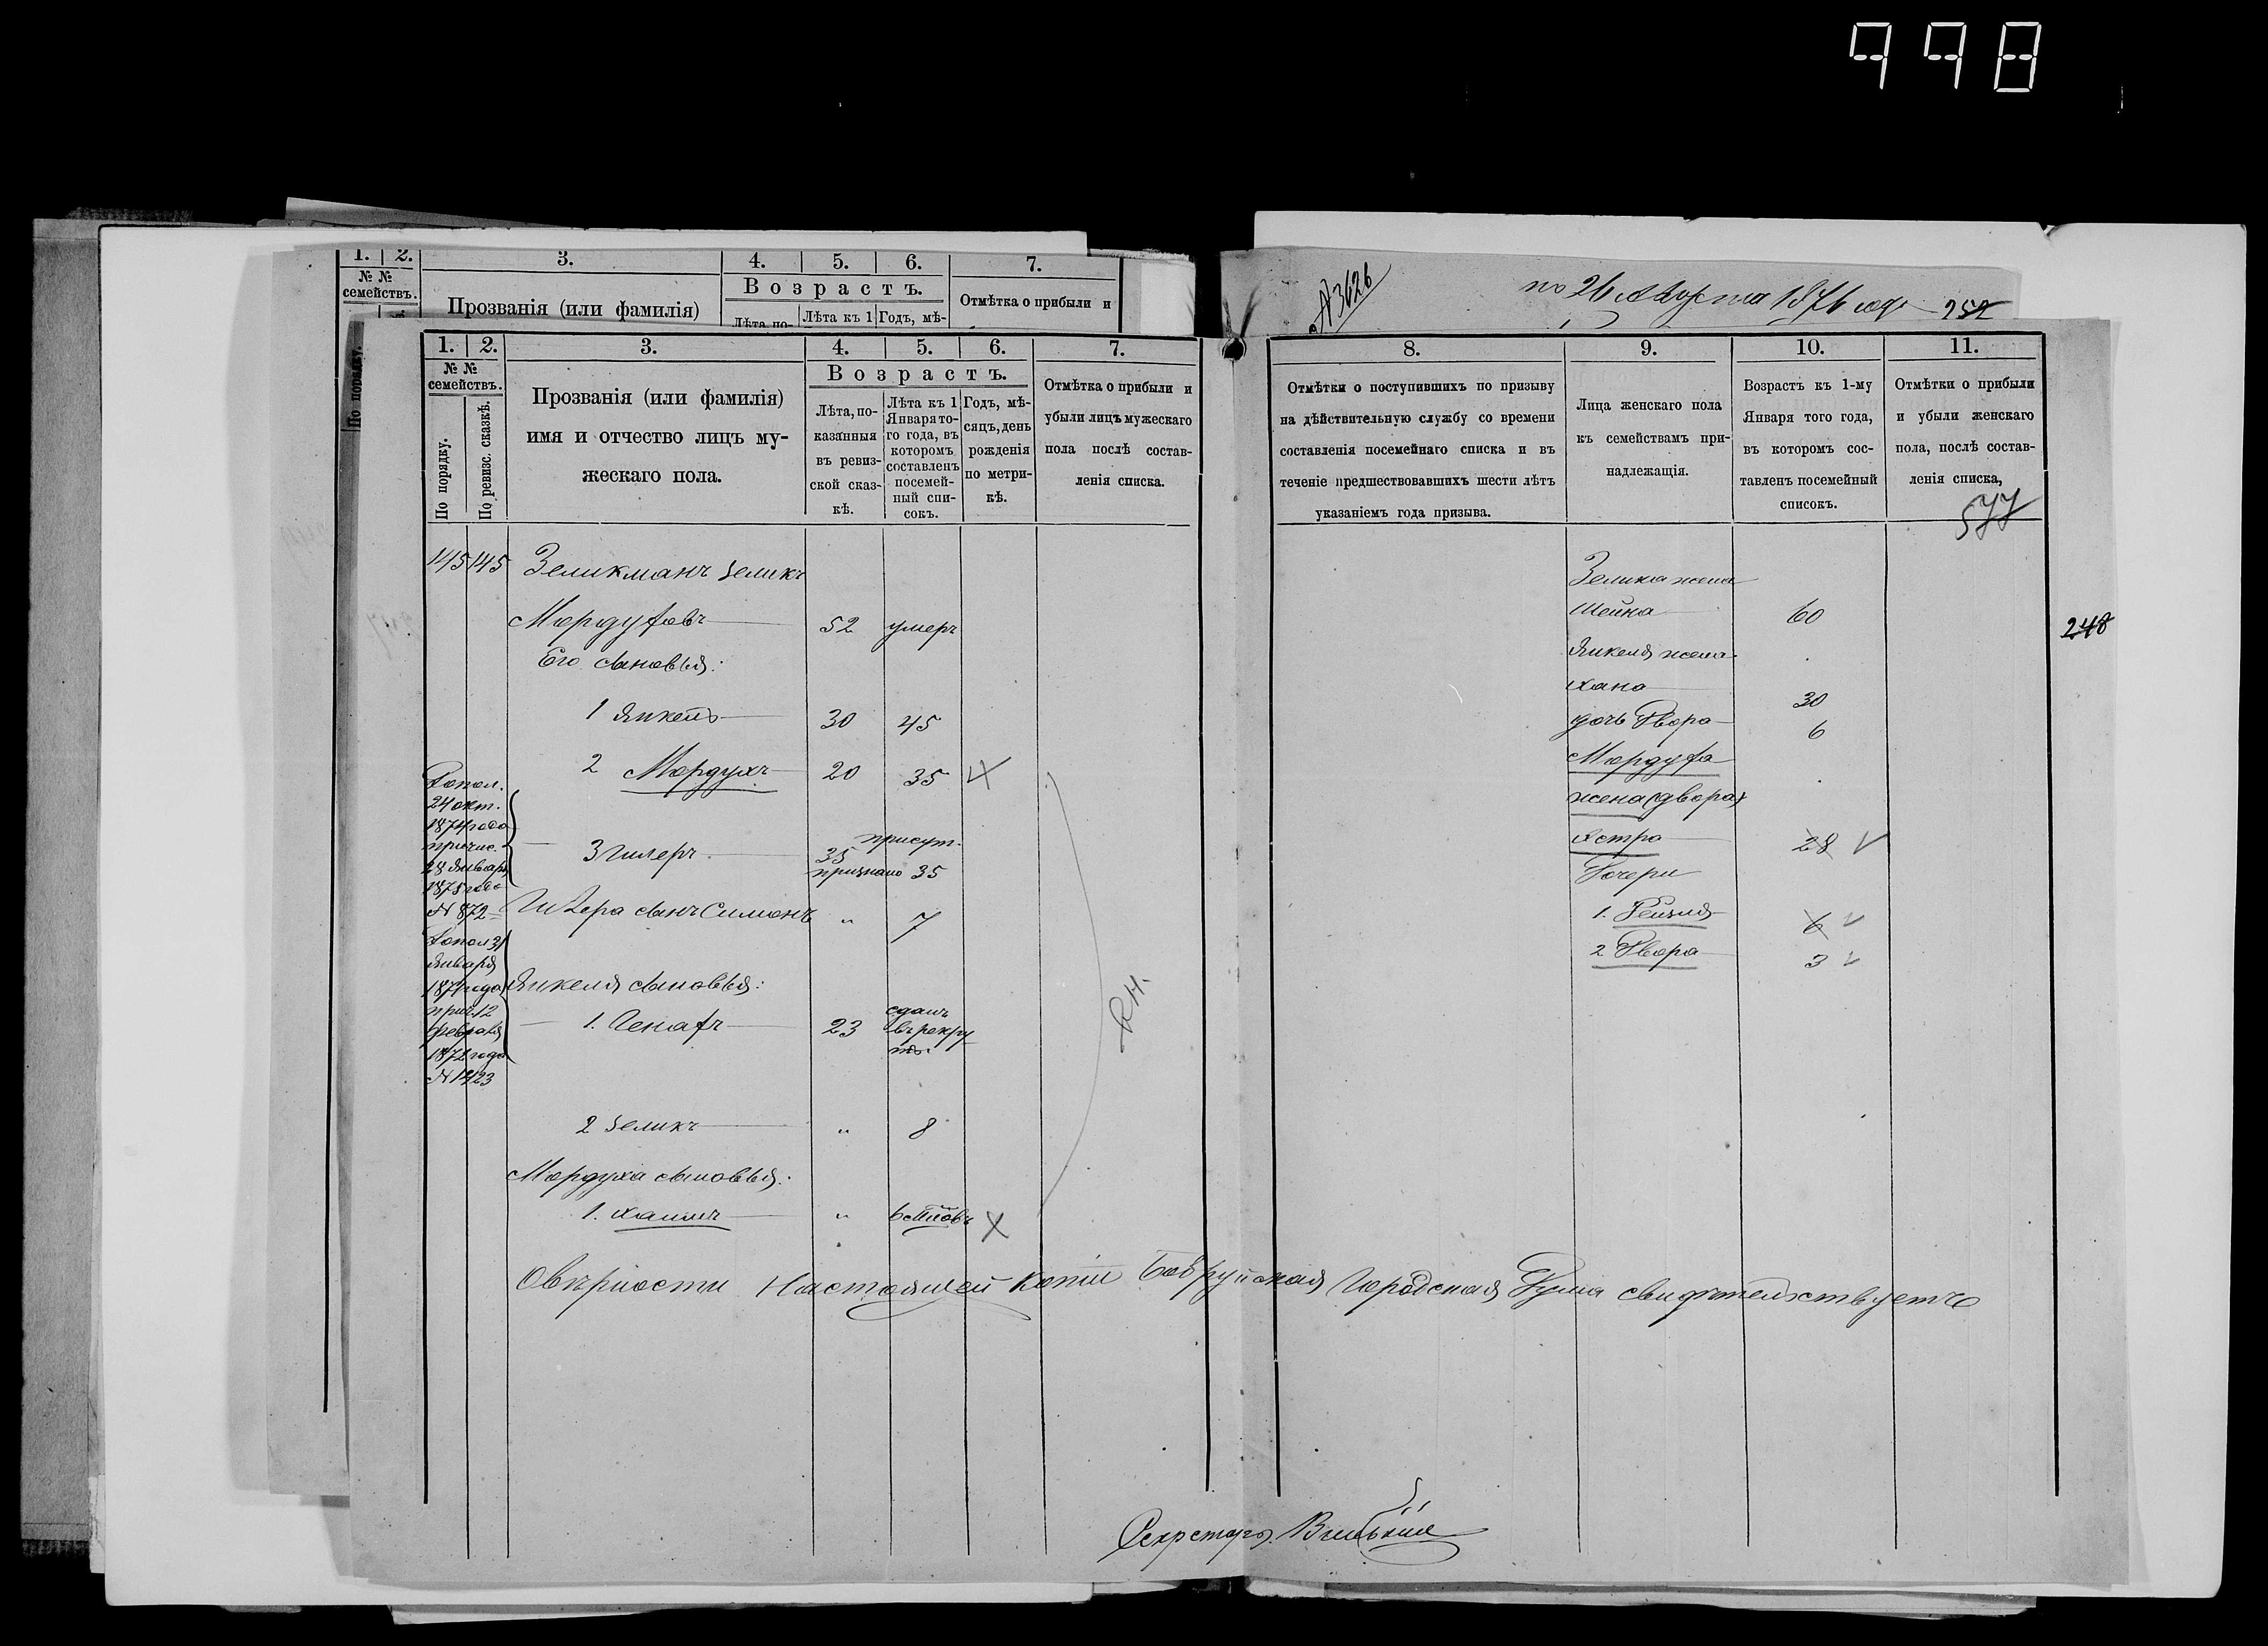 998
1. 2. 3. 4. 5. 6. 7.
№ №
семействъ.
Прозванія (или фамилія)
Возрастъ.
Лѣта по-
Лѣта къ 1
Годъ, мѣ-
Отмѣтка о прибыли и
По порядку.
№ 3626
по 26 Августа 1876 года
252
1. 2. 3. 4. 5. 6. 7.
№ №
семействъ.
По порядку.
По ревизс. сказкѣ.
Прозванія (или фамилія)
имя и отчество лицъ му-
жескаго пола.
Возрастъ.
Лѣта, по-
казанныя
въ ревиз-
ской сказ-
кѣ.
Лѣта къ 1
Января то-
го года, въ
которомъ
составленъ
посемей-
ный спи-
сокъ.
Годъ, мѣ-
сяцъ, день
рожденія
по метри-
кѣ.
Отмѣтка о прибыли и
убыли лицъ мужескаго
пола послѣ состав-
ленія списка.
145 145 Зеликманъ Зеликъ
Мордуховъ 52 умеръ
Его сыновья:
1 Янкель 30 45
2 Мордухъ 20 35
Допол.
24 окт.
1874 года
причис.
28 Января
1875 года
N 872
3 Гилеръ 35 присут.
признано 35
Гилера сынъ Симонъ " 7
Допол 31
Января
1871 года
прич. 12
февраля
1872 года
N 1423
Янкеля сыновья:
1. Генахъ 23 сданъ
въ рекру
ты.
2 Зеликъ " 8
Мордуха сыновья:
1. Хаимъ " 6
О вѣрности настоящей копіи Бобруйская Городская Дума свидѣтельствуетъ
Секретарь
8. 9. 10. 11.
Отмѣтки о поступившихъ по призыву
на дѣйствительную службу со времени
составленія посемейнаго списка и въ
теченіе предшествовавшихъ шести лѣтъ
указаніемъ года призыва.
Лица женскаго пола
къ семействамъ при-
надлежащія.
Возрастъ къ 1-му
Января того года,
въ которомъ сос-
тавленъ посемейный
списокъ.
Отмѣтки о прибыли
и убыли женскаго
пола, послѣ состав-
ленія списка,
577
Зелика жена
Шейна 60
248
Янкеля жена
Хана 30
дочь Двора 6
Мордуха
жена (двора)
Эстра 28
Дочери
1. Рейзля 6
2 Двора 3